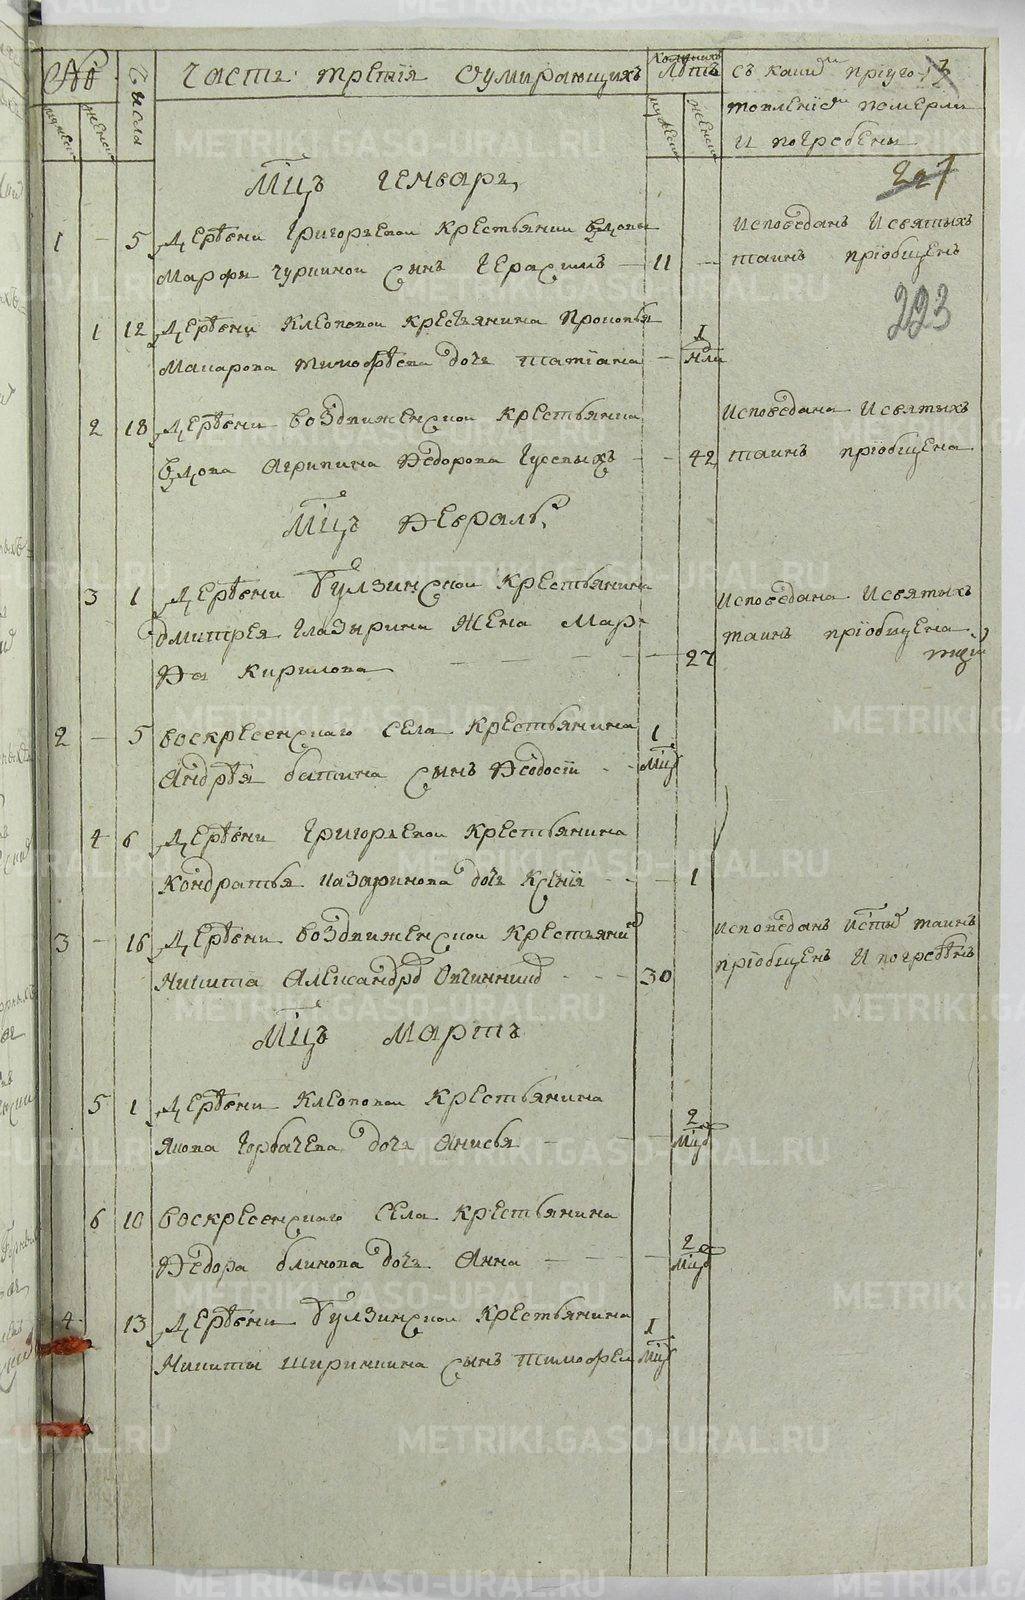 №
мужеск
женск
Числа
Часть третïя Оумирающихъ
Коликихъ
Лѣтъ
мужеск
женск
съ каким прïуго
товленïем померли
и погребены
227
223
Мцъ Генварь
1 - 5 Деревни Григорьевой Крестьянки вдовы
Марфы сынъ Герасимъ - 11 -
Исповѣданъ И святыхъ
таинъ прïобщенъ
1 12 Деревни Клеоповой крестьянина Прокопья
Макарова Тимофѣева дочь Татïана - 1 Нди
2 18 Деревни Воздвиженской Крестьянка
вдова Агрипина Ѳедорова Гусевыхъ - 42
Исповѣдана И святыхъ
таинъ прïобщена
Мцъ Ѳевраль
3 1 Деревни Булзинской Крестьянина
Дмитрея Глазырина Жена Мар-
ѳа Кирилова - - - - 27
Исповѣдана И святыхъ
таинъ прïобщена
2 - 5 Воскресенскаго Села Крестьянина
Андрѣя батина сынъ Ѳеодосïи - - 1 Мцъ
4 6 Деревни Григорьевой Крестьянина
Кондратья Назаринова дочь Ксенïя - - - 1
3 - 16 Деревни Воздвиженской Крестьянинъ
Никита Александров Овчинник - - - 30
Исповѣданъ И стых таинъ
прïобщенъ И погребѣнъ
Мцъ Мартъ
5 1 Деревни Клеоповой Крестьянина
Якова Горбачева дочь Анисья - - - 2 Мцов
6 10 Воскресенскаго Села Крестьянина
Ѳедора блинова дочь Анна - - - - 2 Мцов
4 - 13 Деревни Булзинской Крестьянина
Никиты Ширинкина сынъ Тимоѳей 1 Мцъ
METRIKI.GASO-URAL.RU